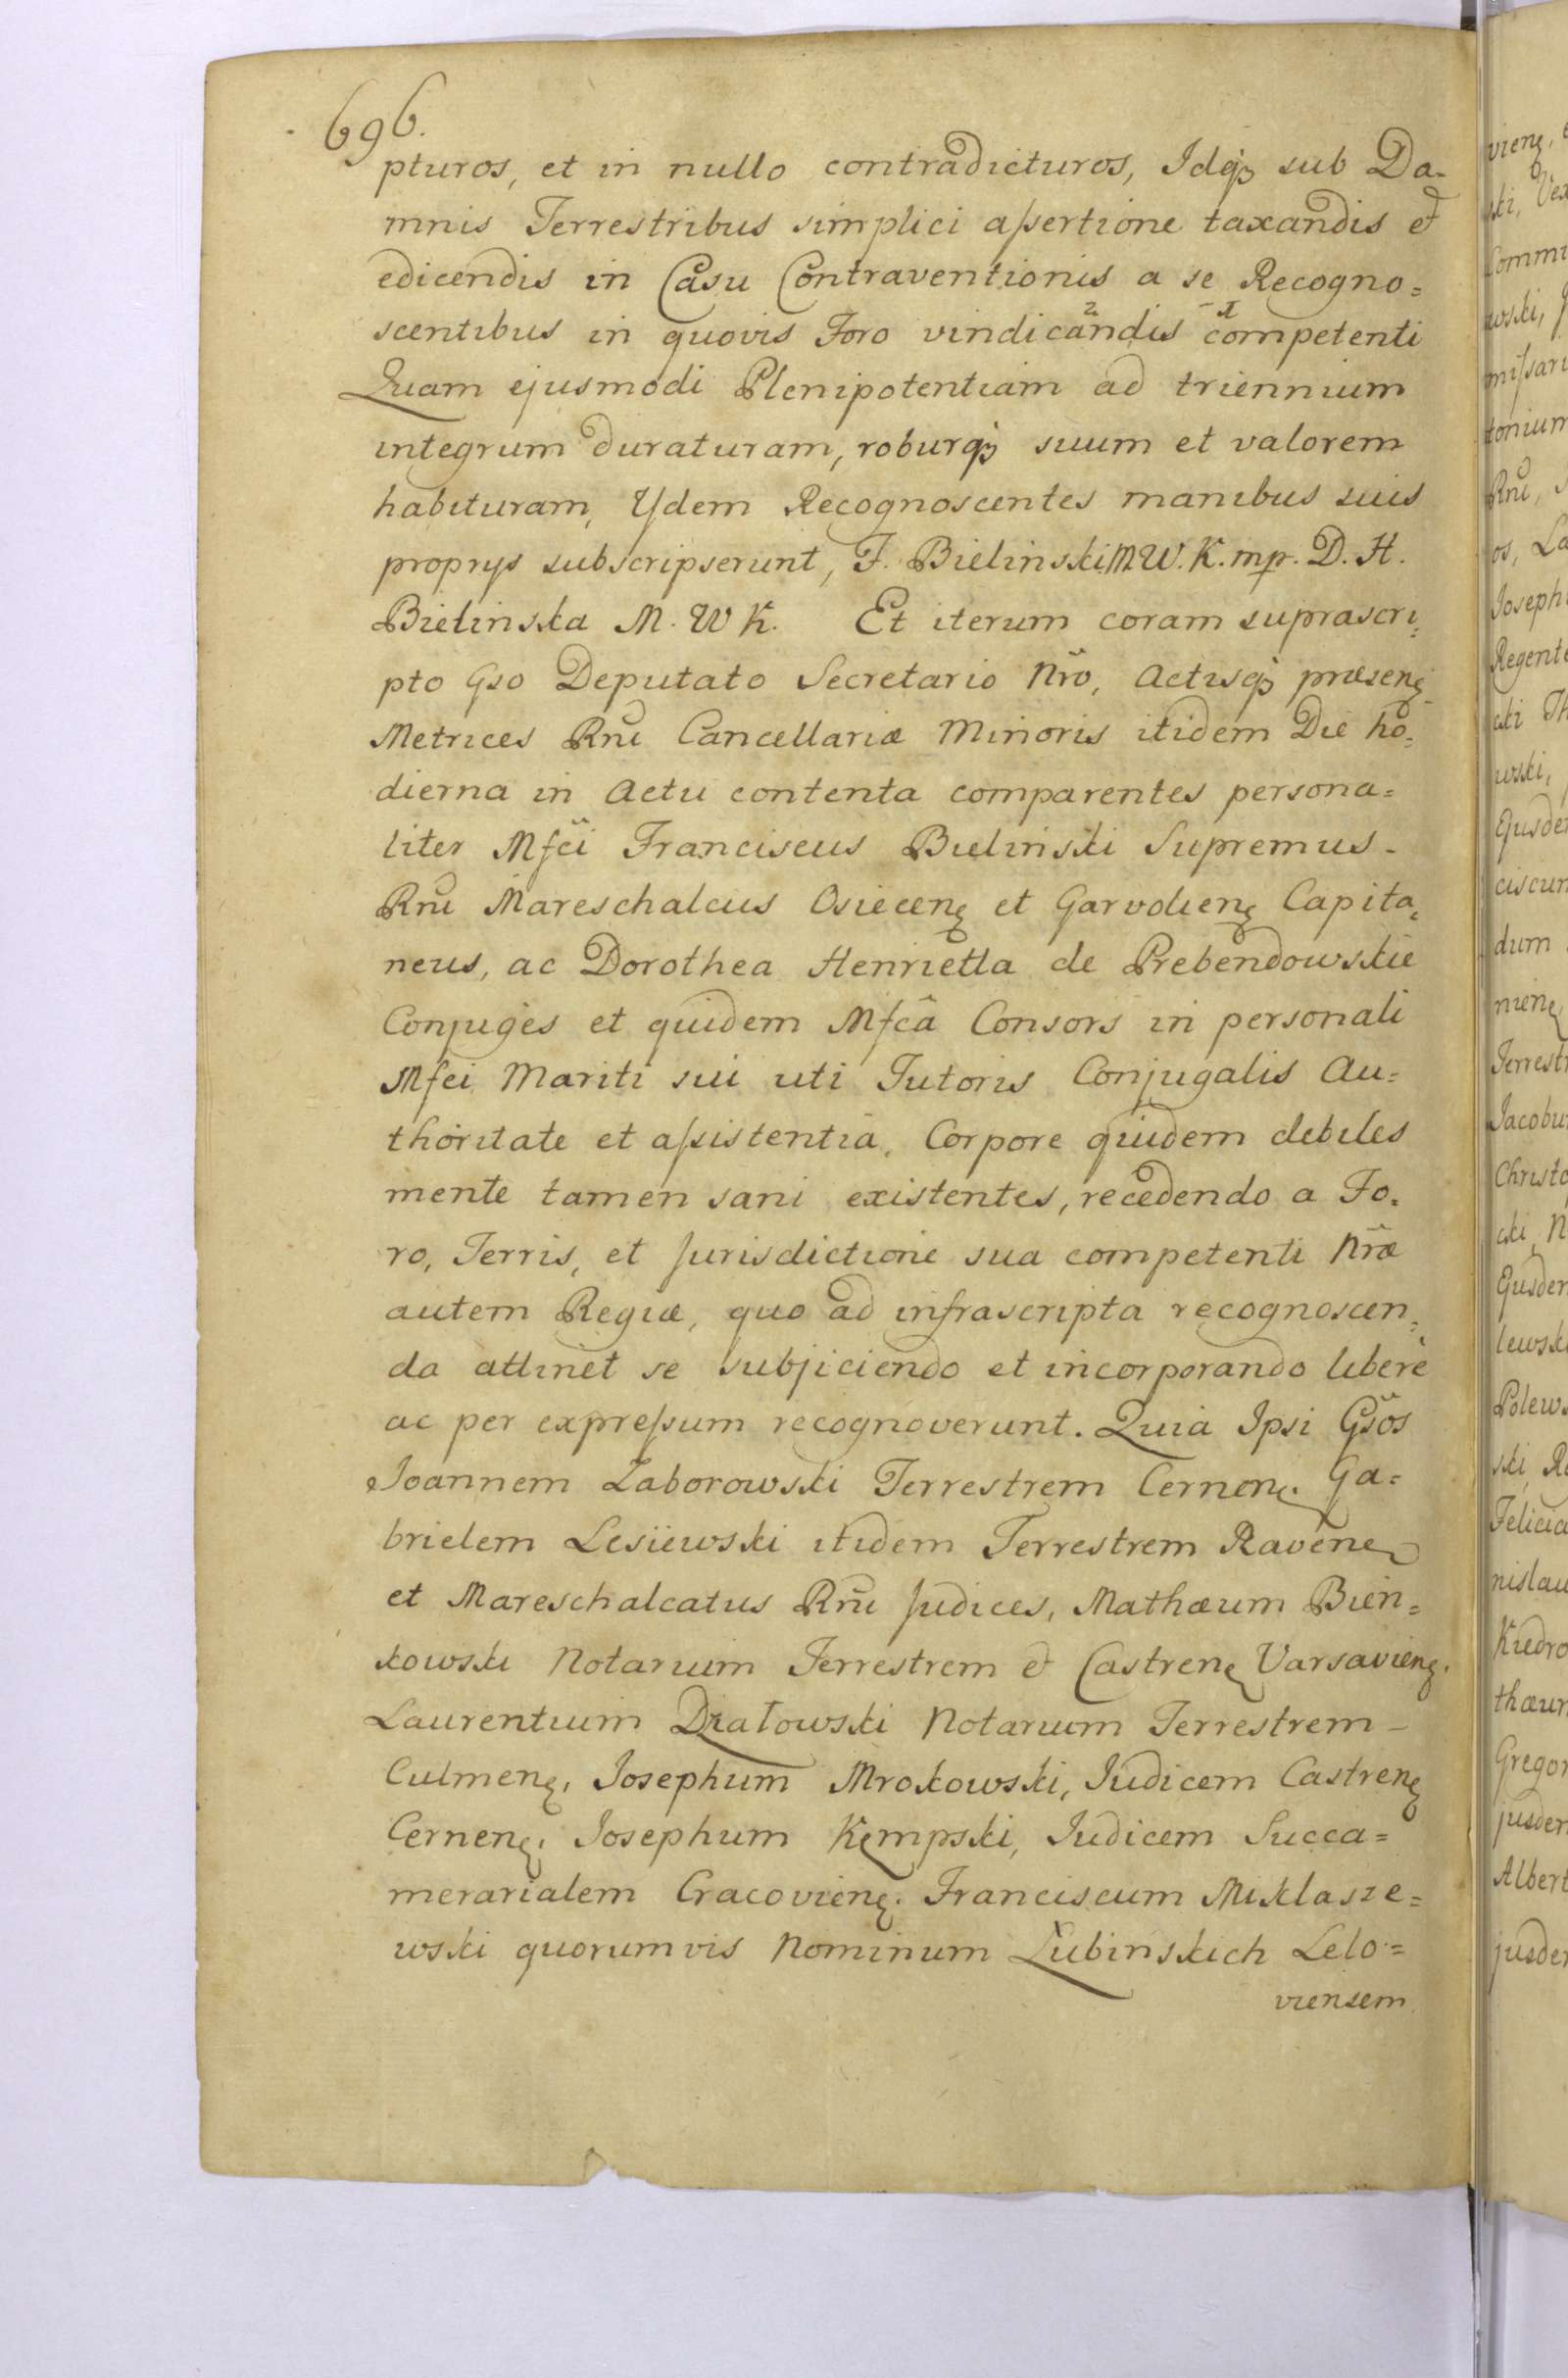 696.
pturos, et in nullo contradicturos, Idq3 sub Da-
mnis Terrestribus simplici aſsertione taxandis et
edicendis in Casu Contraventionis a se Recogno=
scentibus in quovis Foro vindicandis competenti
Quam ejusmodi Plenipotentiam ad triennium
integrum duraturam, roburq3 suum et valorem
habituram, Ydem Recognoscentes manibus suis
proprys subscripserunt, F. Bielinski M W. K. mp. D. H.
Bielinska M. W K. Et iterum coram suprascri=
pto Gso Deputato Secretario Nrõ, Actisq3 præsenȩ
Metrices Rnĩ Cancellariæ Minoris itidem Die ho=
dierna in Actu contenta comparentes persona=
liter Mfcĩ Franciscus Bielinski Supremus-
Rnĩ Mareschalcus Osiecenȩ et Garvolienȩ Capita=
neus, ac Dorothea Henrietta de Prebendowskie
Conjuges et quidem Mfcâ Consors in personali
Mfci Mariti sui uti Tutoris Conjugalis Au=
thoritate et aſsistentia, Corpore quidem debiles
mente tamen sani existentes, recedendo a Fo=
ro, Terris, et Jurisdictione sua competenti Nræ̃
autem Regiæ, quo ad infrascripta recognoscen=
da attinet se subjiciendo et incorporando libere
ac per expreſsum recognoverunt. Quia Ipsi Gsõs
Joannem Zaborowski Terrestrem Cernenȩ. Ga=
brielem Lesiewski itidem Terrestrem Ravenȩ
et Mareschalcatus Rnĩ Judices, Mathæum Bien=
kowski Notarium Terrestrem et Castrenȩ Varsavienȩ.
Laurentium Działowski Notarium Terrestrem-
Culmenȩ, Josephum Mrokowski, Judicem Castrenȩ
Cernenȩ, Josephum Kempski, Judicem Succa=
merarialem Cracovienȩ. Franciscum Miklasze=
wski quorumvis Nominum Łubinskich Lelo=
viensem
vienȩ,
ski, Vex
Commi
wski,
miſsari
tonium
Rnĩ,
os, La
Joseph
Regente
cki Th
wski,
Ejusdem
ciscum
dum
nienȩ
Terrestr
Jacobum
Christo
cki, N
Ejusdem
lewski
Polews
ski, R
Felicia
nislau
Kiedro
thæum
Gregor
jusdem
Albert
jusdem